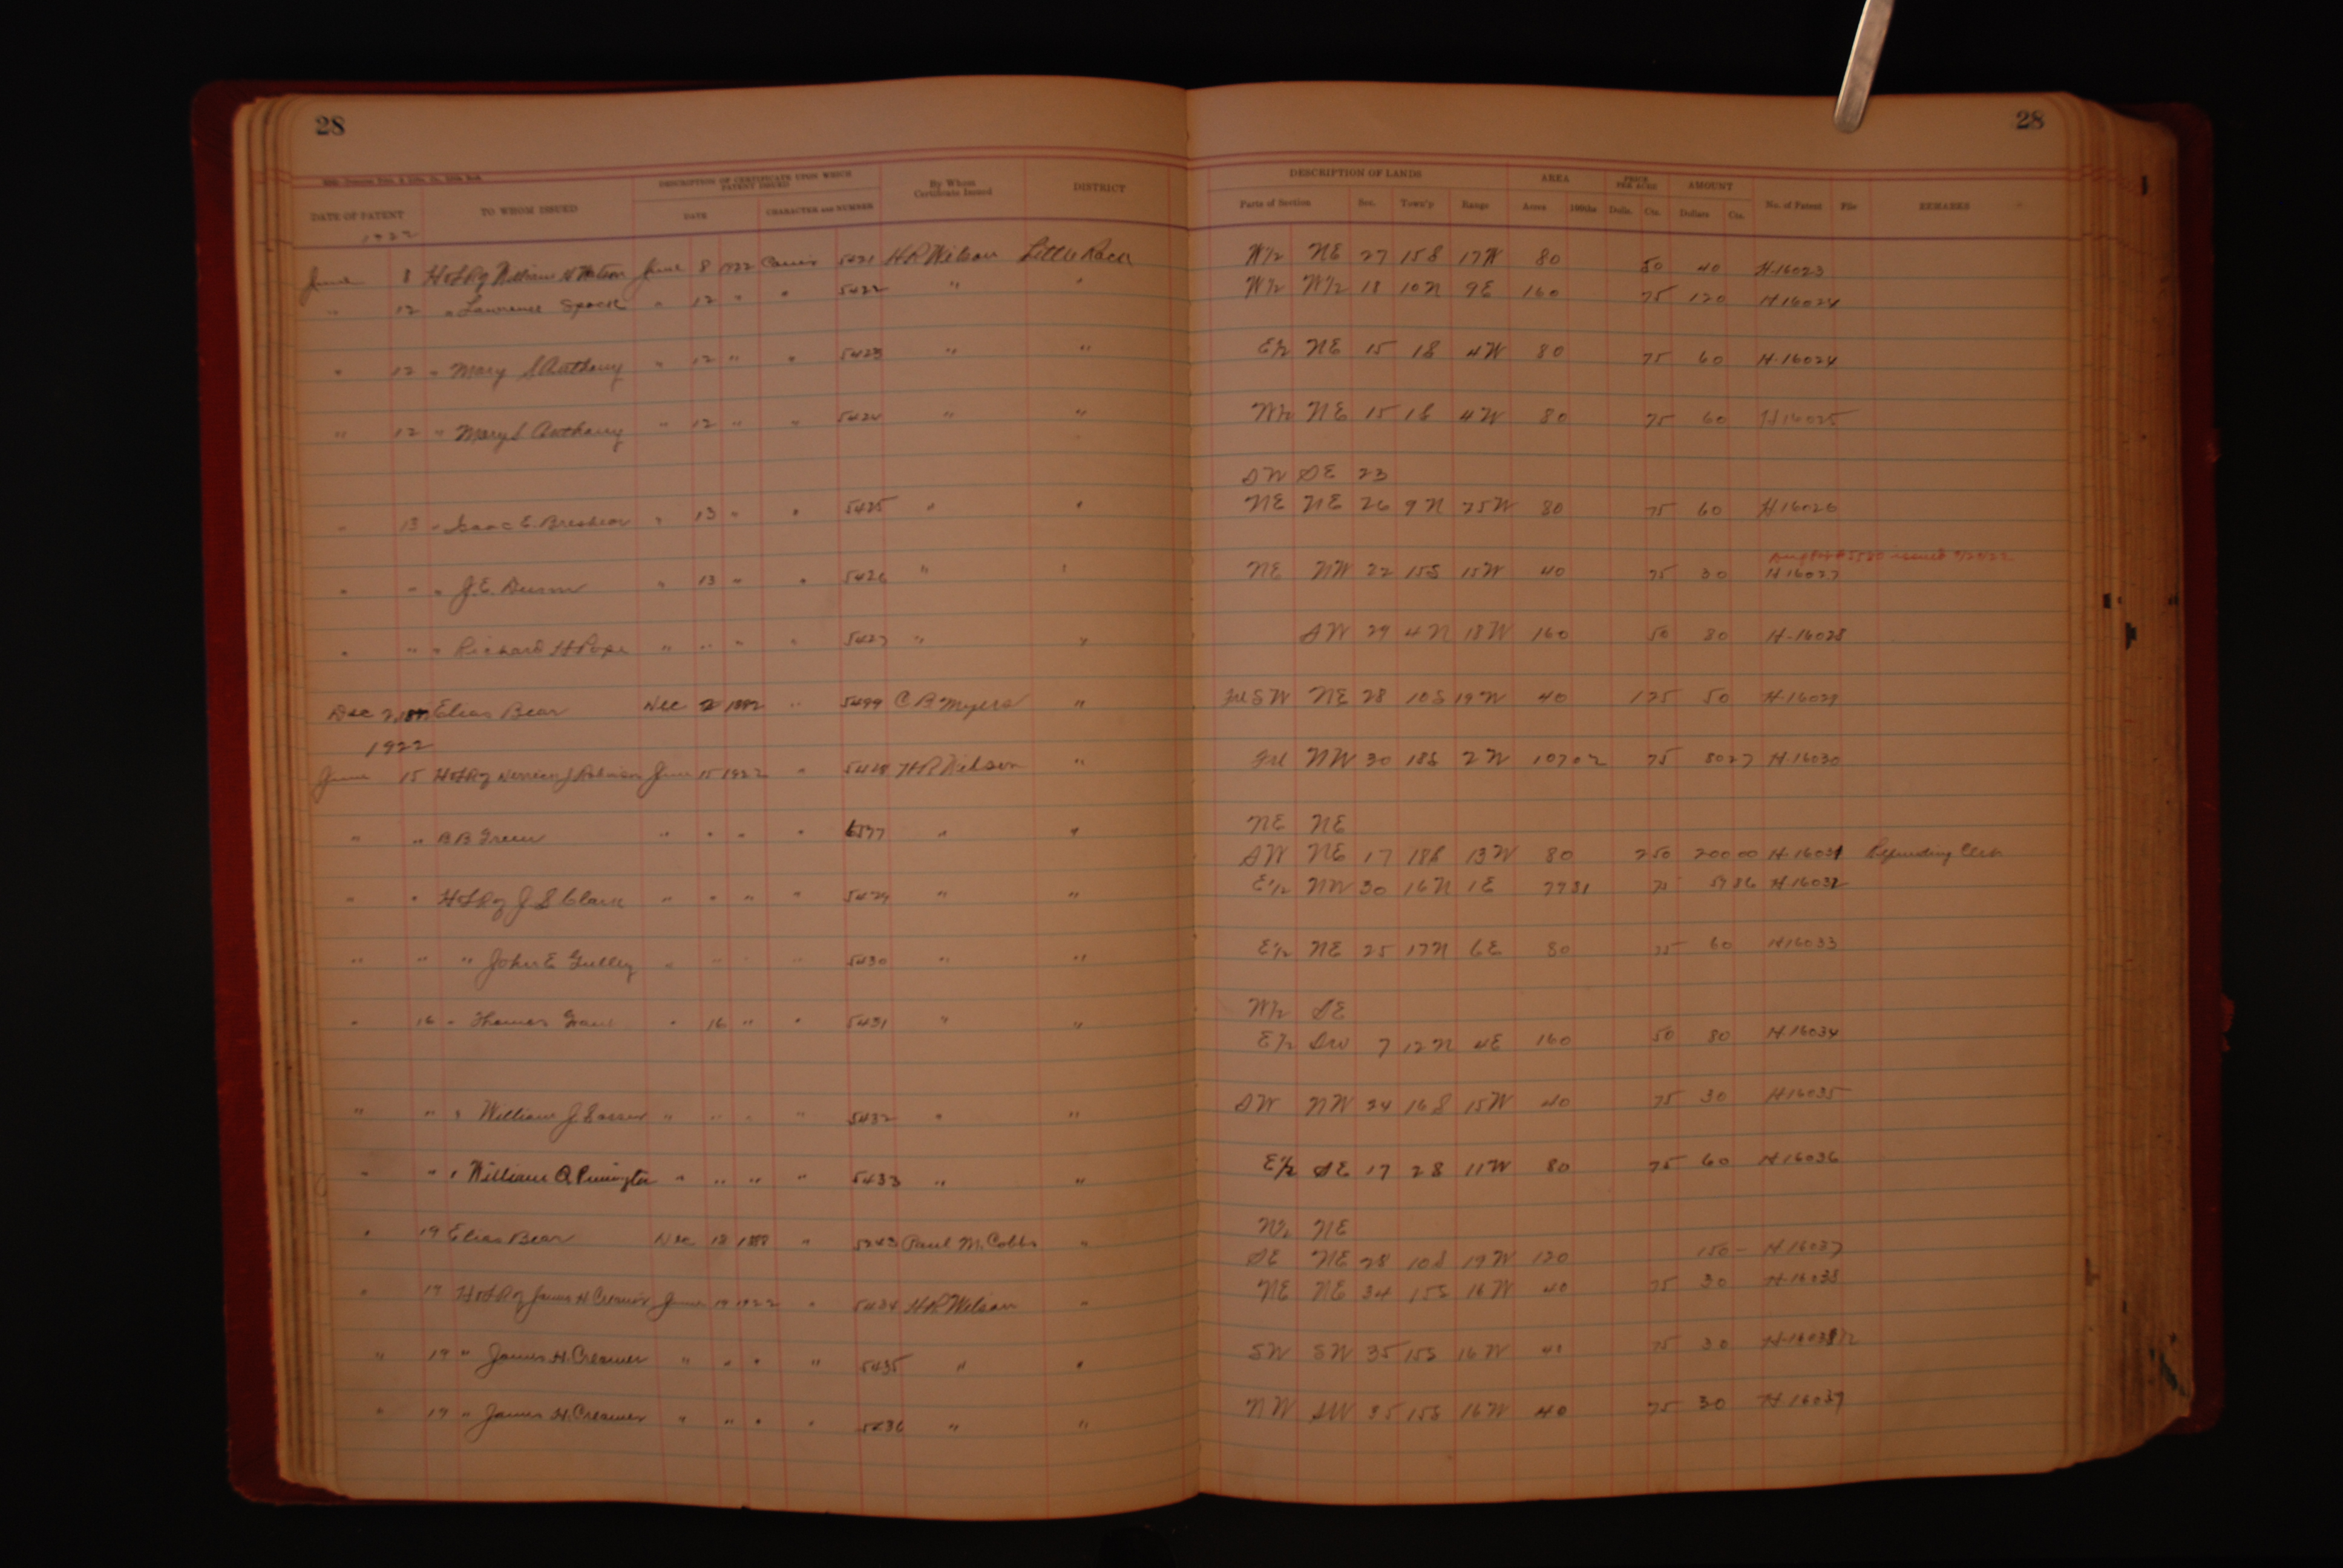 28 28
DESCRIPTION OF CERTIFICATE UPON WHICH PATENT ISSUED By Whom Certificate Issued DISTRICT DESCRIPTION OF LANDS AREA PRICE PER ACRE AMOUNT
DATE OF PATENT TO WHOM ISSUED DATE CHARACTER AND NUMBER Parts of Section Sec. Town'p Range Acres 100ths Dolls. Cts. Dollars Cts. No. of Patent File REMARKS
1922
June 8 William H June 8 1922 5421 H R Wilson Little Rock W½ NE 27 15S 17W 80 50 40 H-16023
" 12 " Lawrence " 12 " " 5422 " " W½ W½ 18 10N 9E 160 75 120 H16024
" 12 " Mary S Anthony " 12 " " 5423 " " E½ NE 15 1S 4W 80 75 60 H-16024
" 12 " Mary S Anthony " 12 " " 5424 " " W½ NE 15 1S 4W 80 75 60 H16025
SW SE 23
" 13 " Isaac E. Breshear " 13 " " 5425 " " NE NE 26 9N 25W 80 75 60 H16026
" " " J. E. " 13 " " 5426 " " NE NW 22 15S 15W 40 75 30 H16027
" " " Richard H Pope " " " " 5427 " " SW 29 4N 18W 160 50 80 H-16028
Dec 2 Elias Bear Dec 2 1882 " 5499 C B Myers " SW NE 28 10S 19W 40 125 50 H-16029
1922
June 15 Robinson June 15 1922 " 5428 H R Wilson " NW 30 18S 2W 107 02 75 80 27 H-16030
" " B B Green " " " " 6577 " " NE NE
SW NE 17 18S 13W 80 2 50 200 00 H-16031 Refunding Cert
" " J. S Clark " " " " 5429 " " E½ NW 30 16N 1E 79 81 75 59 86 H-16032
" " " John E Gulley " " " " 5430 " " E½ NE 25 17N 6E 80 75 60 H16033
" 16 " Thomas " 16 " " 5431 " " W½ SE
E½ SW 7 12N 4E 160 50 80 H-16034
" " " William J. " " " " 5432 " " SW NW 24 16S 15W 40 75 30 H16035
" " " William " " " " 5433 " " E½ SE 17 2S 11W 80 75 60 H16036
" 19 Elias Bear Dec 18 " 5243 Paul M. Cobbs " N½ NE
SE NE 28 10S 19W 120 150 - H-16037
" 19 James H Creamer June 19 1922 " 5434 H R Wilson " NE NE 34 15S 16W 40 75 30 H-16038
" 19 " James H. Creamer " " " " 5435 " " SW SW 35 15S 16W 40 75 30 H-16038½
" 19 " James H. Creamer " " " " 5436 " " NW SW 35 15S 16W 40 75 30 H-16039